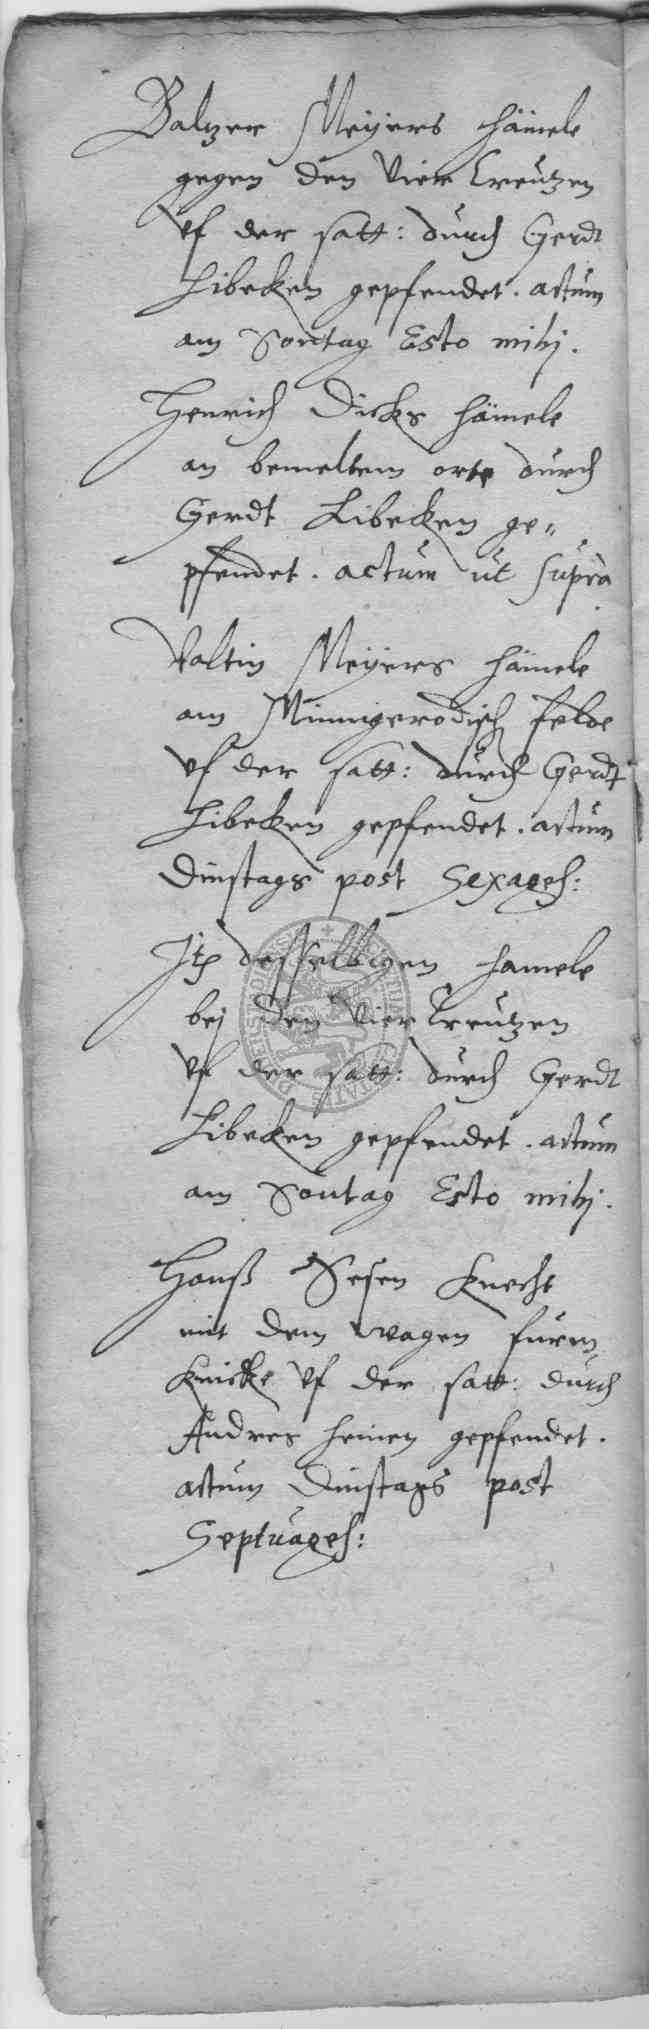 Baltzer Meÿers hämele
gegen den Vier Creutzen
vf der satt: durch Gerdt
Libecken gepfendet. actum
am Sontag Esto mihj.
Henrich Dicks hämele
an bemeltem orte durch
Gerdt Libecken ge-
pfendet. actum ut supra
Valtin Meÿers hämele
am Minnigerodisch felde
vf der satt: durch Gerdt
Libecken gepfendet. actum
Dinstags post Sexages:
Itē desselbigen hamele
bej den Vier Creutzen
vf der satt: durch Gerdt
Libecken gepfendet. actum
am Sontag Esto mihj.
Hanß Sesen Knecht
mit dem wagen fürm
Knicke vf der satt: durch
Andres Heinen gepfendet.
actum Dinstags post
Septuages: